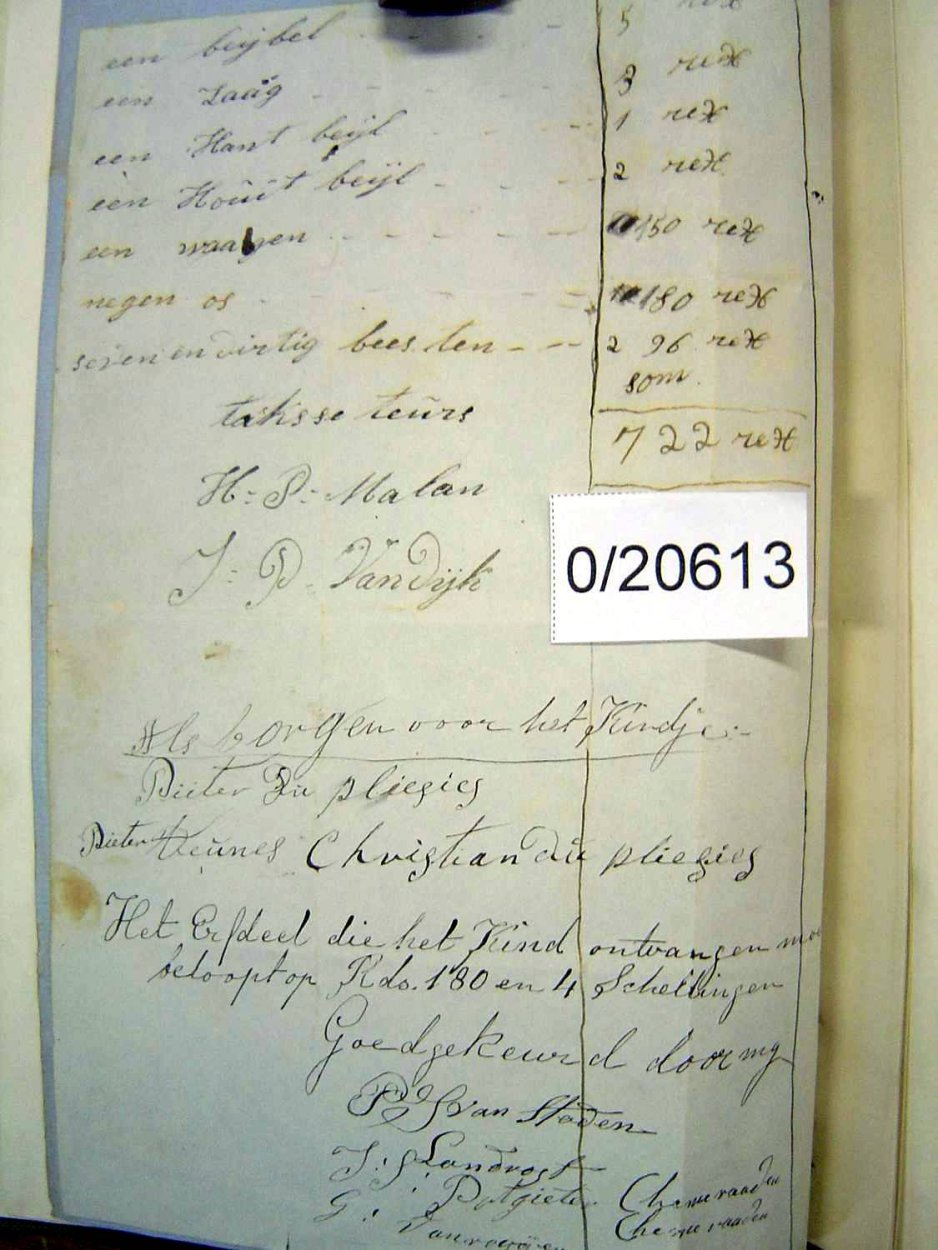 een beijbel - - - - 5 rex
een zaag - - - - 3 rex
een Hant beijl - - - - 1 rex
een Houit beijl - - - - 2 rex
een waagen - - - - 150 rex
negen os - - - - 180 rex
seven en virtig beesten - - - 296 rex
som
taksse teurs 722 rex
H: P: Malan
J: P: Van Dijk
0/20613
Als borgen voor het Kindje:-
Pieter Du pliesies
Pieter Teunes Christian du pliesies
Het Erfdeel die het Kind ontvangen
beloopt op Rds. 180 en 4 Schellingen
Goedgekeurd door my
van Staden
Landrost
J: Potgieter Heemraaden
G: Heemraaden